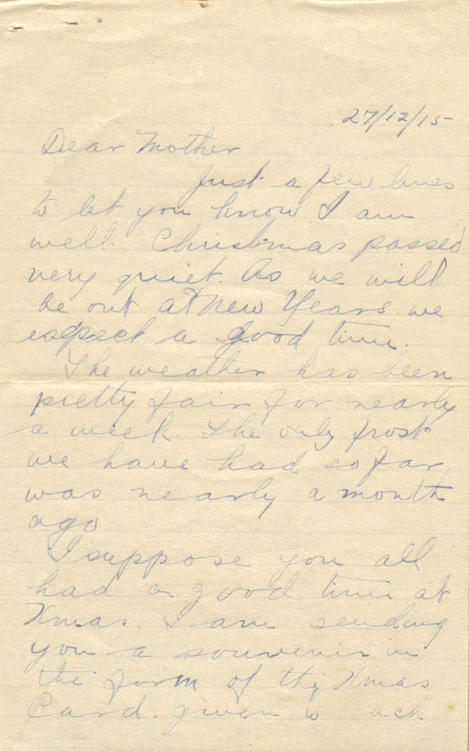 27/12/15
Dear Mother
Just a few lines
to let you know I am
well. Christmas passed
very quiet. As we will
be out at New Years we
expect a good time.
The weather has been
pretty fair for nearly
a week. The only frost
we have had so far
was nearly a month
ago
I suppose you all
had a good time at
Xmas. I am sending
you a souvenir in
the form of the Xmas
Card. given to